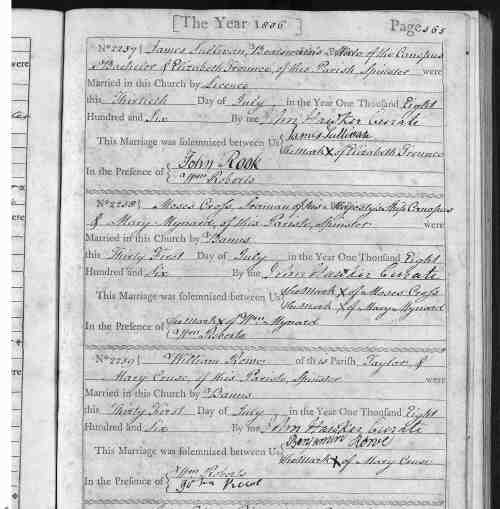 [The Year 1806 Page 365
No 2257 { James Sullivan, Boatswain's Mate of the Canopus
Bachelor & Elizabeth Trounce, of this Parish, Spinster were
Married in this Church by Licence
this Thirtieth Day of July in the Year One Thousand Eight
Hundred and Six By me John Hawker Curate
This Marriage was solemnized between Us { James Sullivan
the Mark X of Elizabeth Trounce
In the Presence of { John Rook
Wm Roberts
No 2258 { Moses Cross, Seaman of his Majesty's Ship Canopus
& Mary Mynard, of this Parish, Spinster were
Married in this Church by Banns
this Thirty First Day of July in the Year One Thousand Eight
Hundred and Six By me John Hawker Curate
This Marriage was solemnized between Us { the Mark X of Moses Cross
the Mark X of Mary Mynard
In the Presence of { the Mark X of Wm Mynard
Wm Roberts
No 2259 { William Rowe of this Parish Taylor, &
Mary Cruse, of this Parish, Spinster were
Married in this Church by Banns
this Thirty First Day of July in the Year One Thousand Eight
Hundred and Six By me John Hawker Curate
This Marriage was solemnized between Us { Benjamin Rowe
the Mark X of Mary Cruse
In the Presence of { Wm Roberts
John